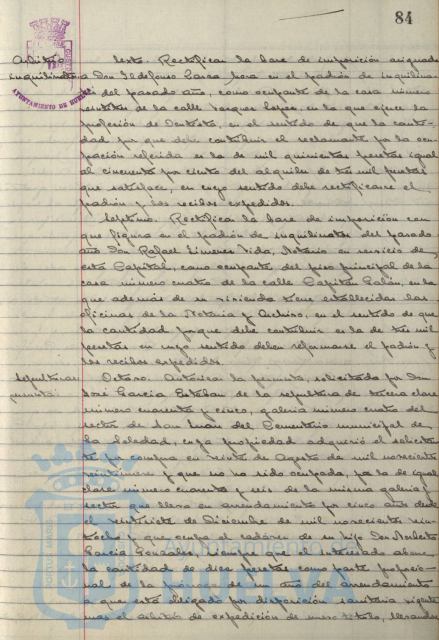 84
Arbitrio Sexto. Rectificar la base de imposición asignada
inquilinatos a Don Ildefonso Larra en el padrón de inquilina-
AYUNTAMIENTO DE HUELVA
del pasado año, como ocupante de la casa número
veintitres de la calle Vazquez Lopez, en la que ejerce la
profesión de Dentista, en el sentido de que la canti-
dad por que debe contribuir el reclamante por la ocu-
pación referida es la de mil quinientas pesetas igual
al cincuenta por ciento del alquiler de tres mil pesetas
que satisface, en cuyo sentido debe rectificarse el
padrón y los recibos expedidos.
Septimo. Rectificar la base de imposición con
que figura en el padrón de inquilinatos del pasado
año Don Rafael Jimenez Vida, Notario en servicio de
esta Capital, como ocupante del piso principal de la
casa número cuatro de la calle Capitan Galán, en la
que además de su vivienda tiene establecidas las
oficinas de la Notaria y Archivo, en el sentido de que
la cantidad porque debe contribuir es la de tres mil
pesetas en cuyo sentido deben reformarse el padrón y
los recibos expedidos.
Sepulturas: Octavo. Autorizar la permuta, solicitada por Don
permuta: José Garcia Esteban de la sepultura de tercera clase
número cuarenta y cinco, galeria número cuatro del
sector de San Juan del Cementerio municipal de
la Soledad, cuya propiedad adquirió el solicitan-
te por compra en veinte de Agosto de mil novecientos
veintinueve y que no ha sido ocupada, por la de igual
clase número cuarenta y seis de la misma galeria y
sector que lleva en arrendamiento por cinco años desde
el veintisiete de Diciembre de mil novecientos vein-
tiocho y que ocupa el cadáver de su hijo Don Roberto
Garcia Gonzalez, siempre que el interesado abone
la cantidad de diez pesetas como parte proporcio-
nal de la prórroga de un año del arrendamiento
a que está obligado por disposición sanitaria vigente
mas el arbitrio de expedición de nuevo titulo, llevandose